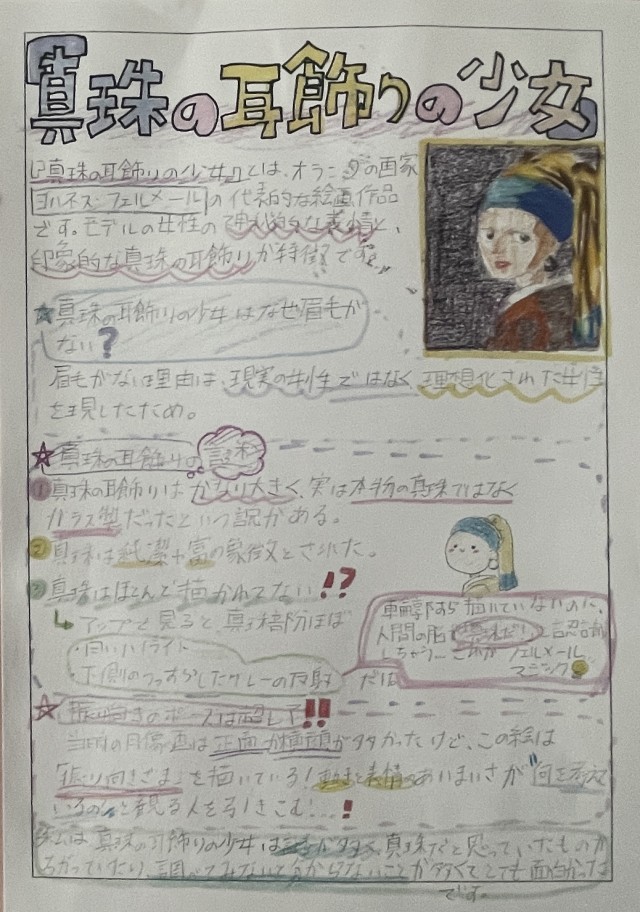 真珠の耳飾りの少女
『真珠の耳飾りの少女』とは、オランダの画家
ヨハネス・フェルメールの代表的な絵画作品
です。モデルの女性の神秘的な表情と、
印象的な真珠の耳飾りが特徴です。
★真珠の耳飾りの少女はなぜ眉毛が
ない?
眉毛がない理由は、現実の女性ではなく、理想化された女性
を表現したため。
☆真珠の耳飾りの謎
①真珠の耳飾りはかなり大きく、実は本物の真珠ではなく
ガラス製だったという説がある。
②真珠は純潔や富の象徴とされた。
③真珠はほとんど描かれてない!?
↳アップで見ると真珠部分はほぼ
・白いハイライト
・下側のうっすらしたグレーの反射
だけ
輪郭すら描いていないのに、
人間の脳が真珠だ!と認識
しちゃう…これがフェルメール
マジック
☆振り向きのポーズは超レア!!
当時の肖像画は正面か横顔が多かったけど、この絵は
「振り向きざま」を描いている!動きと表情のあいまいさが"何を考えて
いるの"と観る人を引きこむ!…!
真珠の耳飾りの少女は謎が多く、真珠だと思っていたものが
ちがっていたり、調べてみないと分からないことが多くてとても面白かった
です。